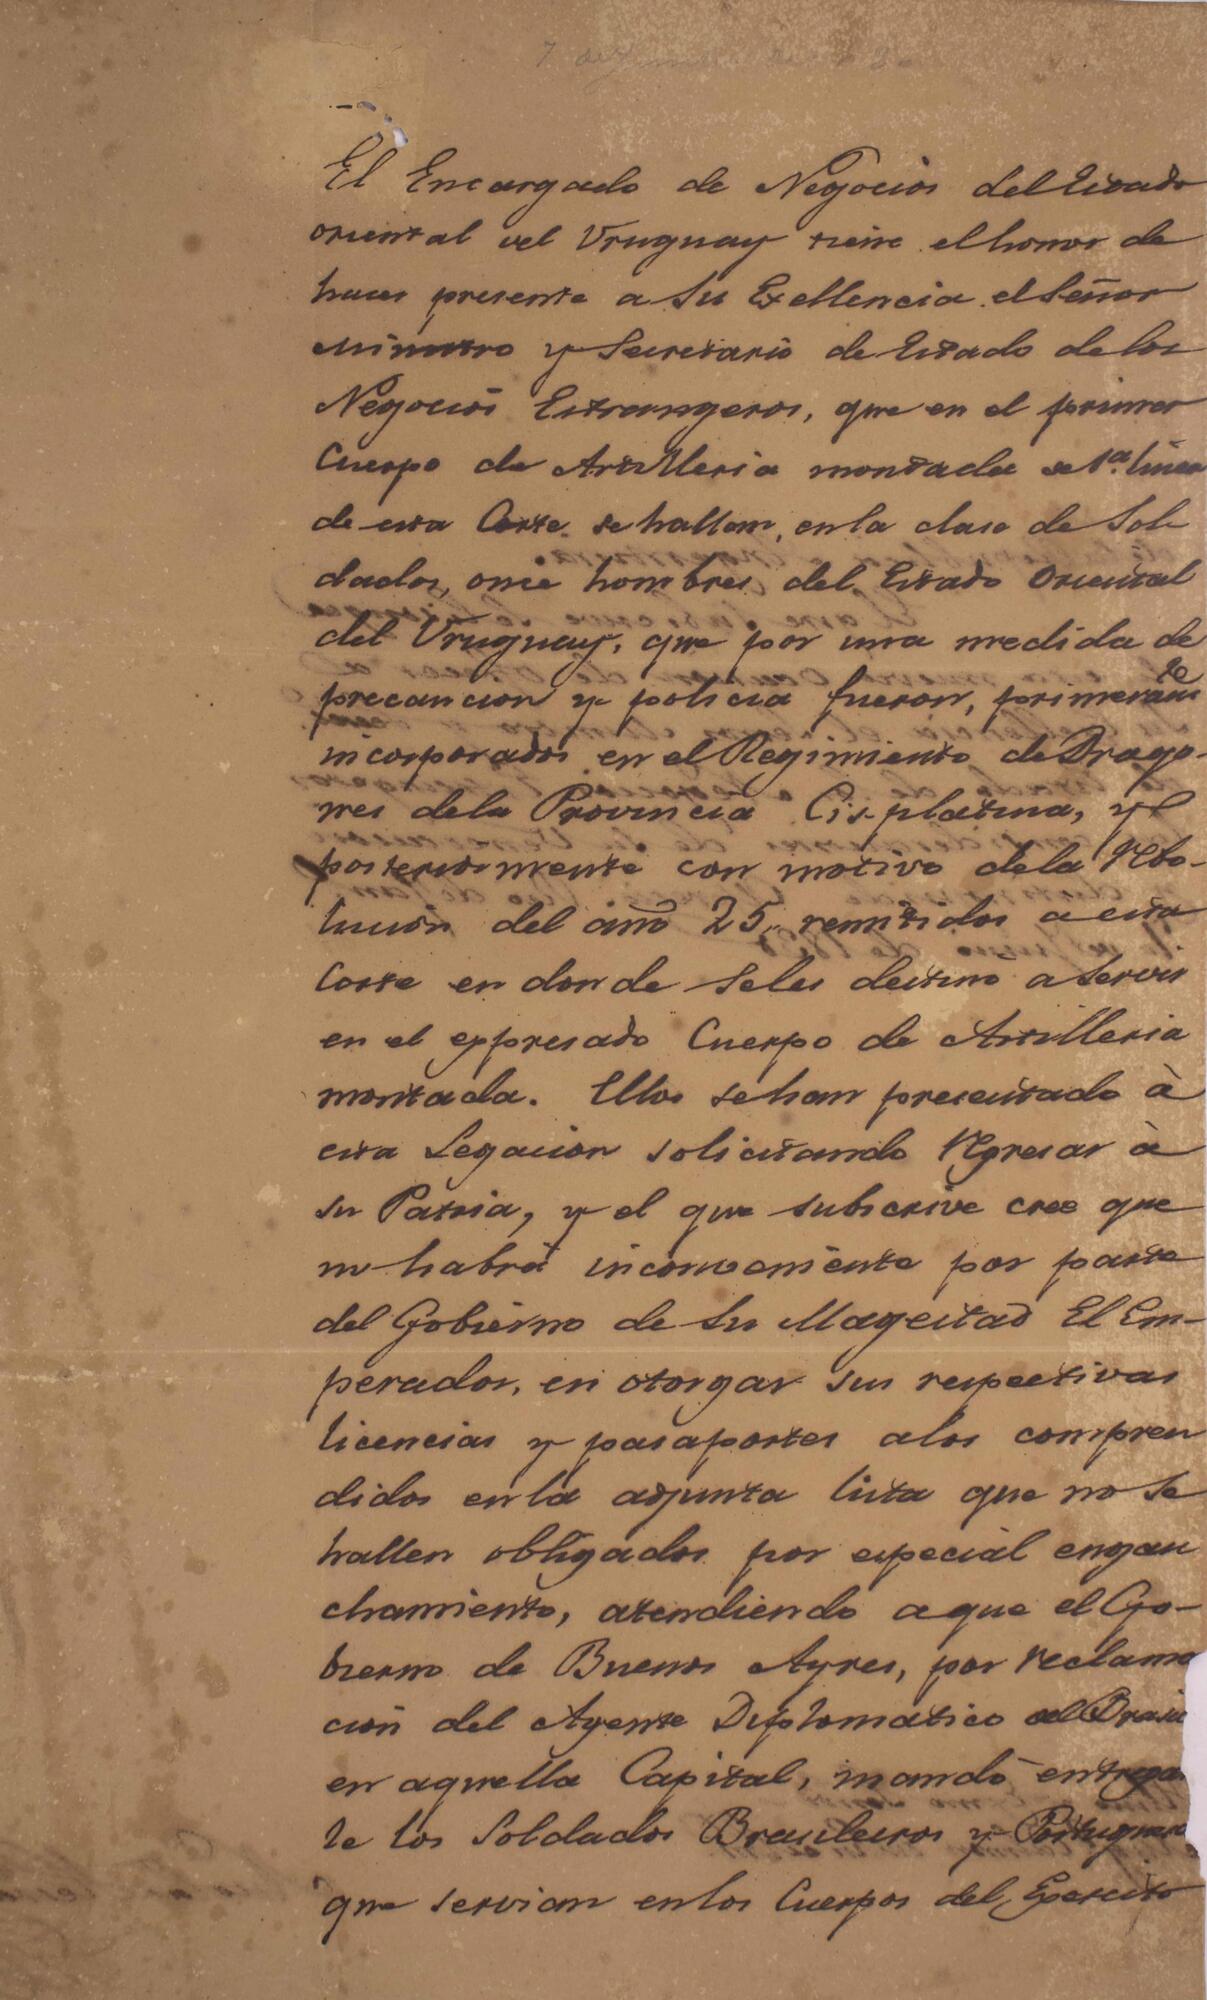 El Encargado de Negocios del Estado
oriental del Uruguay tiene el honor de
hacer presente a Su Exellencia el Señor
Ministro y Secretario de Estado de los
Negocios Estrangeros, que en el primer
Cuerpo de Artilleria montada de 1ª. linea
de esta Corte se hallan, en la clase de Sol-
dados, once hombres del Estado Oriental
del Uruguay, que por una medida de
precaucion y policia fueron, primeramte
incorporados en el Regimiento de Drago-
nes de la Provincia Cis-platina, y
posteriormente con motivo de la Rebo-
lucion del año 25, remitidos a esta
Corte en donde se les destino a servir
en el expresado Cuerpo de Artilleria
montada. Ellos se han presentado à
esta Legacion solicitando Regresar à
su Patria, y el que subscrive cree que
no habrá inconveniente por parte
del Gobierno de Su Magestad El Em-
perador, en otorgar sus respectivas
licencias y pasaportes a los compren
didos en la adjunta lista que no se
hallen obligados por especial engan
chamiento, atendiendo a que el Go-
bierno de Buenos Ayres, por reclama
ción del Agente Diplomatico del Brasil
en aquella Capital, mandó entregar
le los Soldados Brasileiros y Portugueses
que servian en los Cuerpos del Egercito